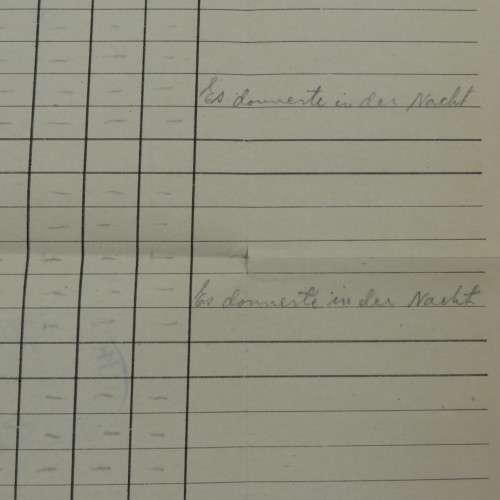 Es donnerte in der Nacht
Es donnerte in der Nacht